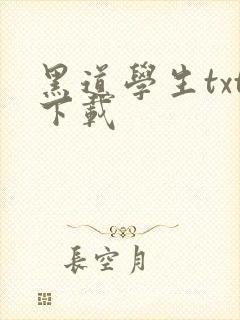 黑道學生txt
下載
長空月